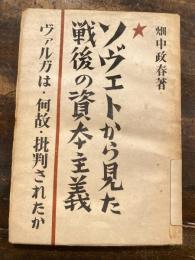 畑中政春著
ソヴェトから見た
戦後の資本主義
ヴァルガは・何故・批判されたか